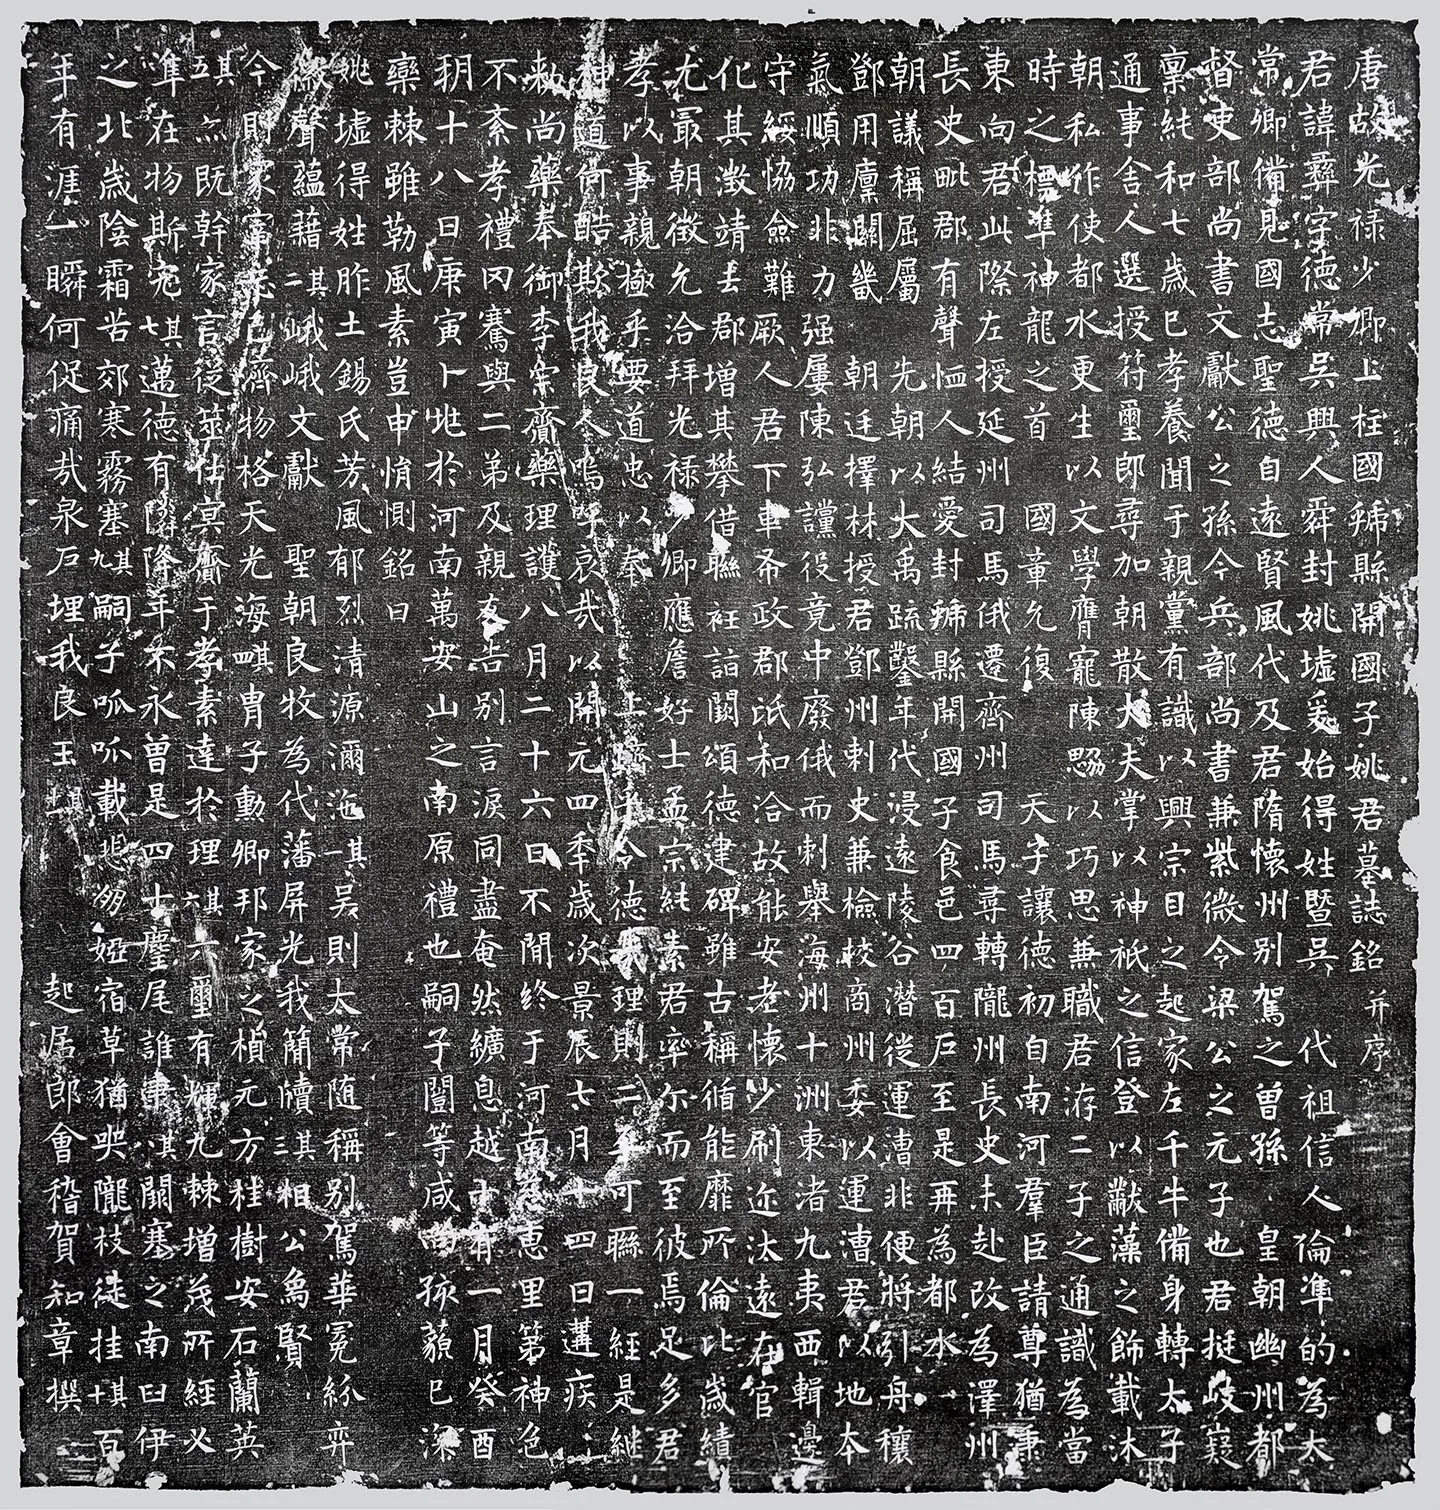 唐故光禄少卿上柱國虢縣開國子姚君墓誌銘并序
君諱彝字德常吳興人舜封姚墟爰始得姓暨吳 代祖信人倫準的為太
常卿備見國志聖德自遠賢風代及君隋懷州别駕之曾孫 皇朝幽州都
督吏部尚書文獻公之孫今兵部尚書兼紫微令梁公之元子也君挺岐嶷
禀純和七歲已孝養聞于親黨有識以興宗目之起家左千牛備身轉太子
通事舍人選授符璽郎尋加朝散大夫掌以神祇之信登以黻藻之飾載沐
朝私作使都水更生以文學膺寵陳勰以巧思兼職君洊二子之通識為當
時之標準神龍之首 國章允復 天子讓德初自南河羣臣請尊猶秉
東向君此際左授延州司馬俄遷齊州司馬尋轉隴州長史未赴改為澤州
長史毗郡有聲恤人結愛封虢縣開國子食邑四百戶至是再為都水
朝議稱屈屬 先朝以大禹疏鑿年代浸遠陵谷潜從運漕非便將引舟穰
鄧用廪關畿 朝廷擇材授君鄧州刺史兼檢校商州委以運漕君以地本
氣順功非力强屢陳弘讜役竟中廢俄而刺舉海州十洲東渚九夷西輯邊
守綏恊僉難厥人君下車布政郡氓和洽故能安老懷少刷迩汰遠在官
化其澂靖去郡增其攀借聯袵詣闕頌德建碑雖古稱循能靡所倫比歲績
尤㝡朝徵允洽拜光禄少卿應詹好士孟宗純素君率尔而至彼焉足多君
孝以事親極乎要道忠以奉上 令德 理則二 可聯一經是継
神道何酷 我良人嗚呼哀哉以開元四秊歲次景辰七月十四日遘疾
勅尚藥奉御李宗齎藥理護八月二十六日不閒終于河南慈惠里第神色
不紊孝禮罔騫與二弟及親友告别言淚同盡奄然纊息越 有一月癸酉
玥十八日庚寅卜兆於河南萬安山之南原禮也嗣子闓等咸 孩藐已深
欒棘雖勒風素豈申悄惻銘曰
姚墟得姓胙土錫氏芳風郁烈清源濔迤其一吳則太常随稱别駕華冕紛弈
徽聲蘊藉其二峨峨文獻 聖朝良牧為代藩屏光我簡牘其三相公為賢
今則家 齊物格天光海其四胄子動卿邦家之楨元方桂樹安石蘭英
其五亦既幹家言從筮仕冥齎于孝素達於理其六六璽有輝九棘增茂所經必
準在物斯宪其七邁德有 降年不永曾是四十麈尾誰 其八闕塞之南臼伊
之北歲陰霜苦郊寒霧塞其九嗣子呱呱載悲 娅宿草猶 隴枝徒挂其十百
年有涯一瞬何促痛哉泉石埋我良玉其十一 起居郎會稽賀知章撰